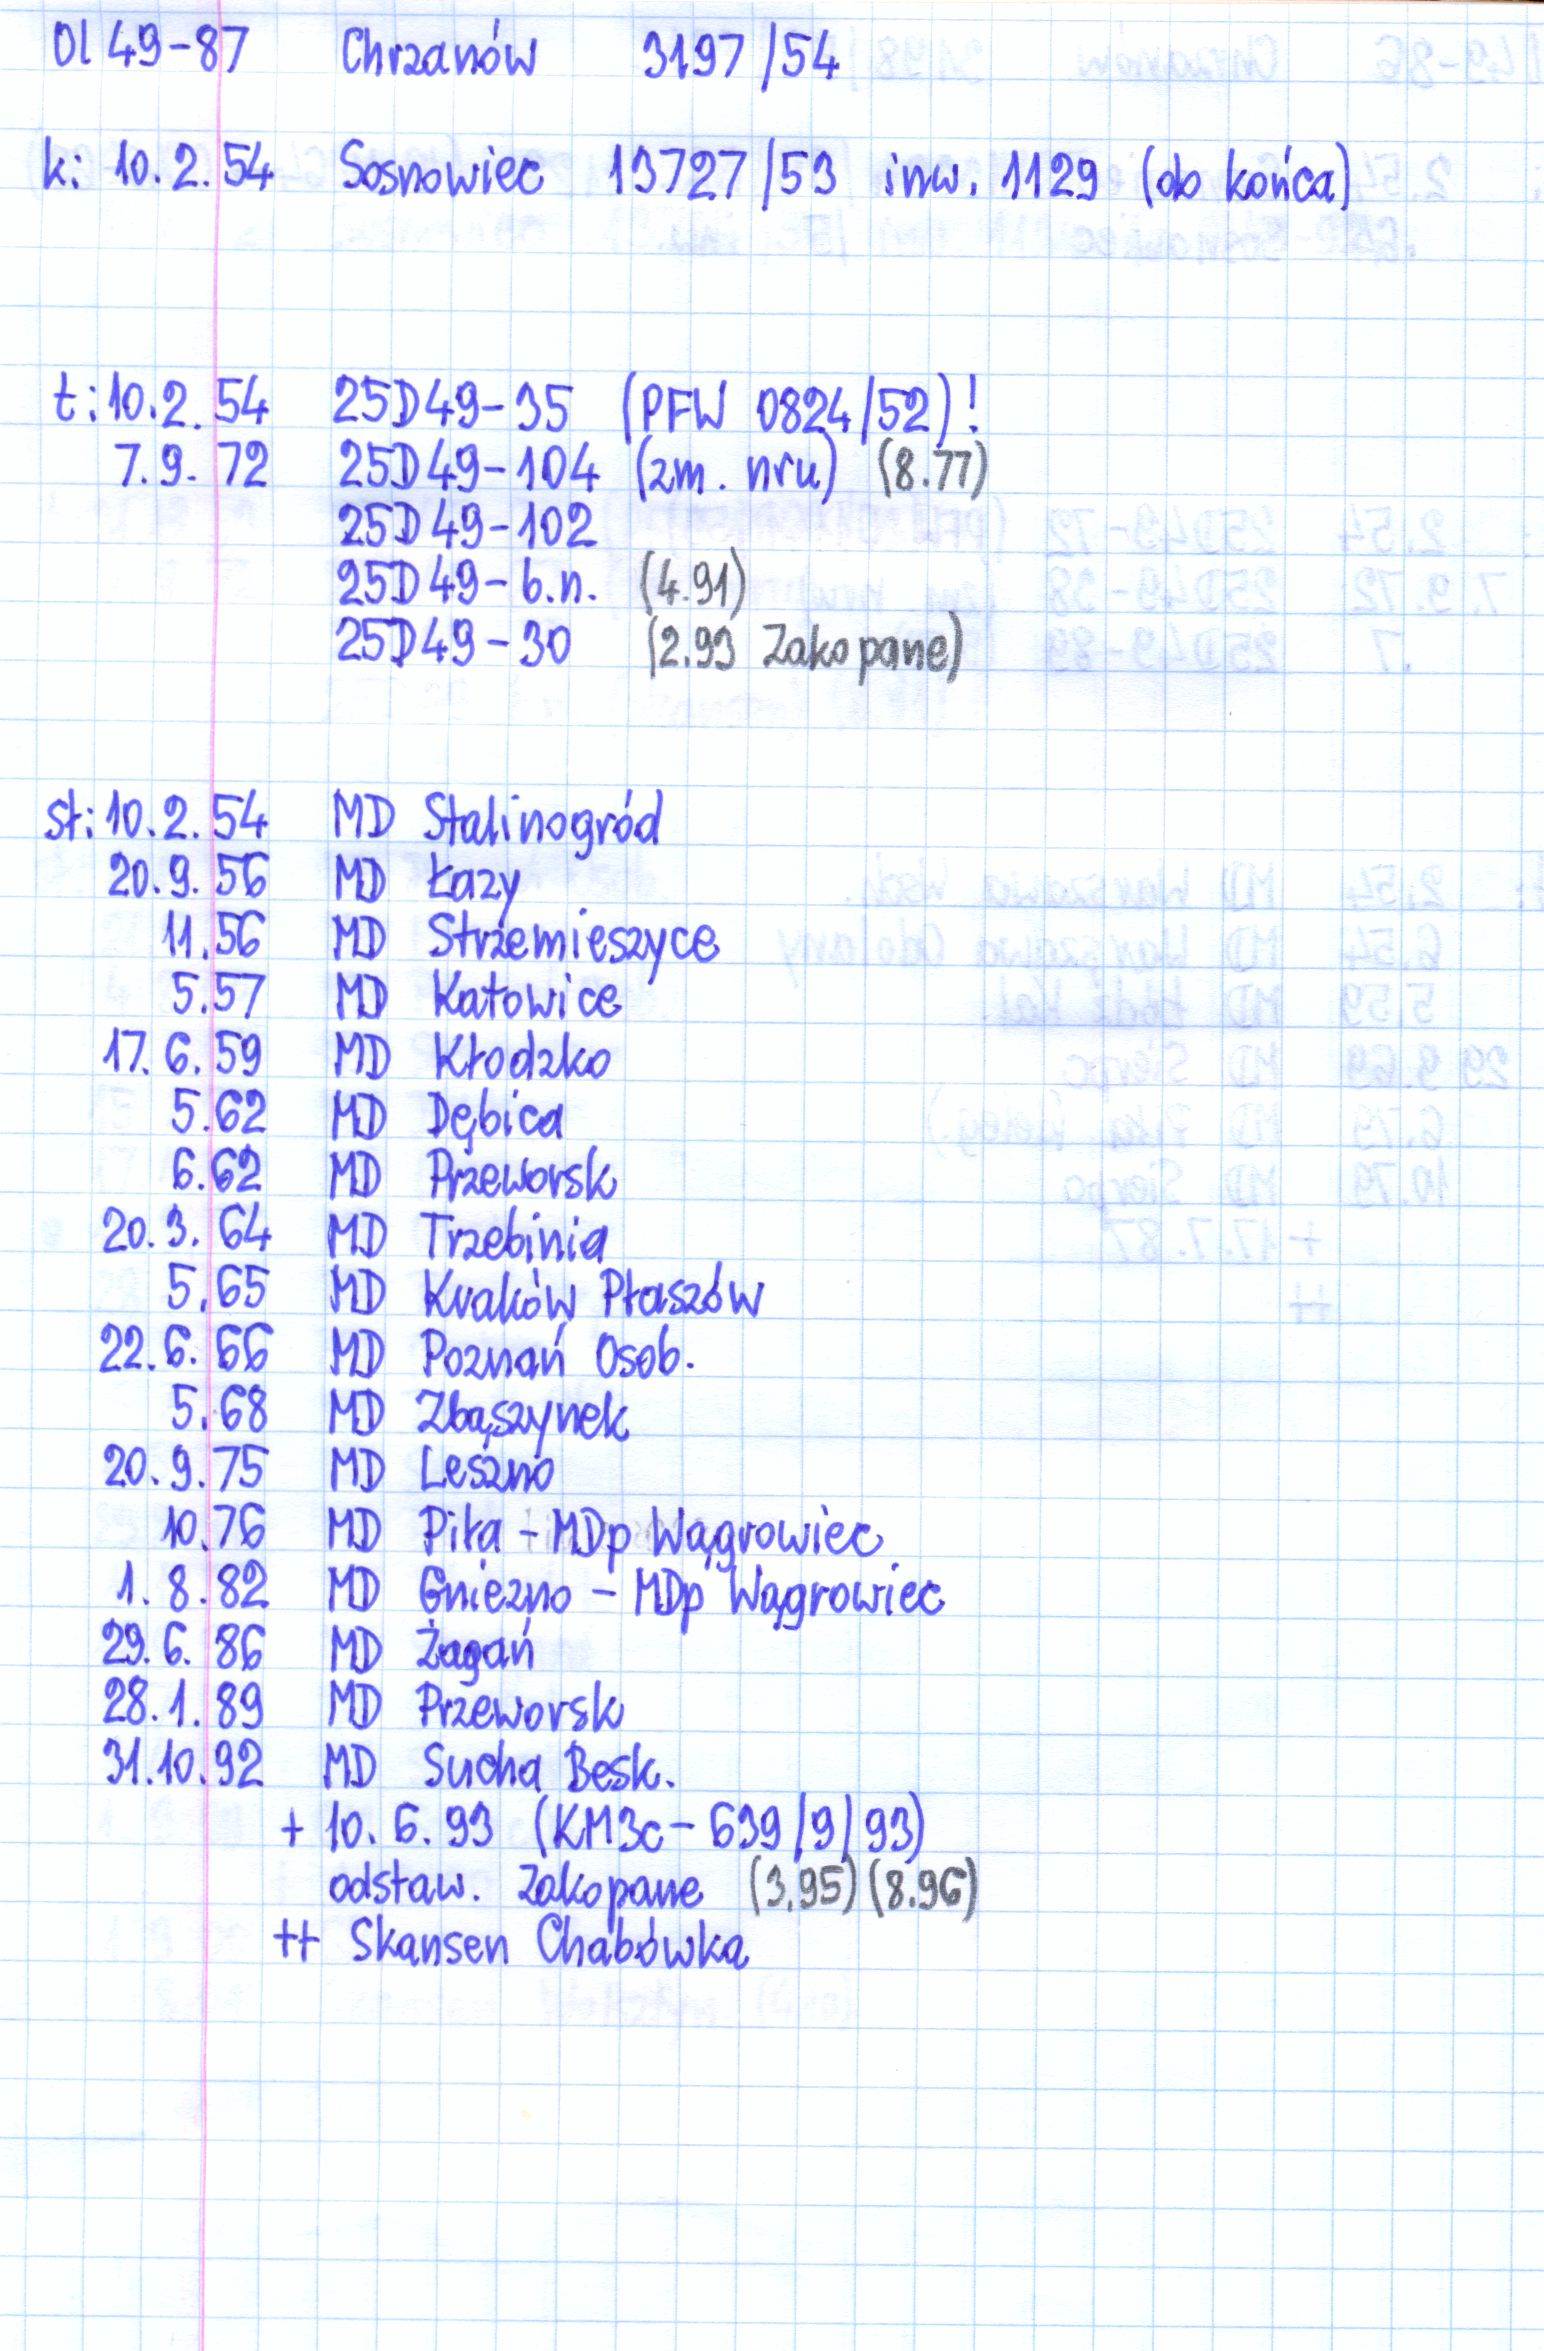 Ol 49-87 Chrzanów 3197/54
k: 10.2.54 Sosnowiec 13727/53 inw. 1129 (do końca)
t: 10.2.54 25D49-35 (PFW 0824/52)!
7.9.72 25D49-104 (zm. nru) (8.77)
25D49-102
25D49-b.n. (4.91)
25D49-30 (2.93 Zakopane)
st: 10.2.54 MD Stalinogród
20.9.56 MD Łazy
11.56 MD Strzemieszyce
5.57 MD Katowice
17.6.59 MD Kłodzko
5.62 MD Dębica
6.62 MD Przeworsk
20.3.64 MD Trzebinia
5.65 MD Kraków Płaszów
22.6.66 MD Poznań Osob.
5.68 MD Zbąszynek
20.9.75 MD Leszno
10.76 MD Piła - MDp Wągrowiec
1.8.82 MD Gniezno - MDp Wągrowiec
29.6.86 MD Żagań
28.1.89 MD Przeworsk
31.10.92 MD Sucha Besk.
+ 10.6.93 (KM3c-639/9/93)
odstaw. Zakopane (3.95) (8.96)
++ Skansen Chabówka